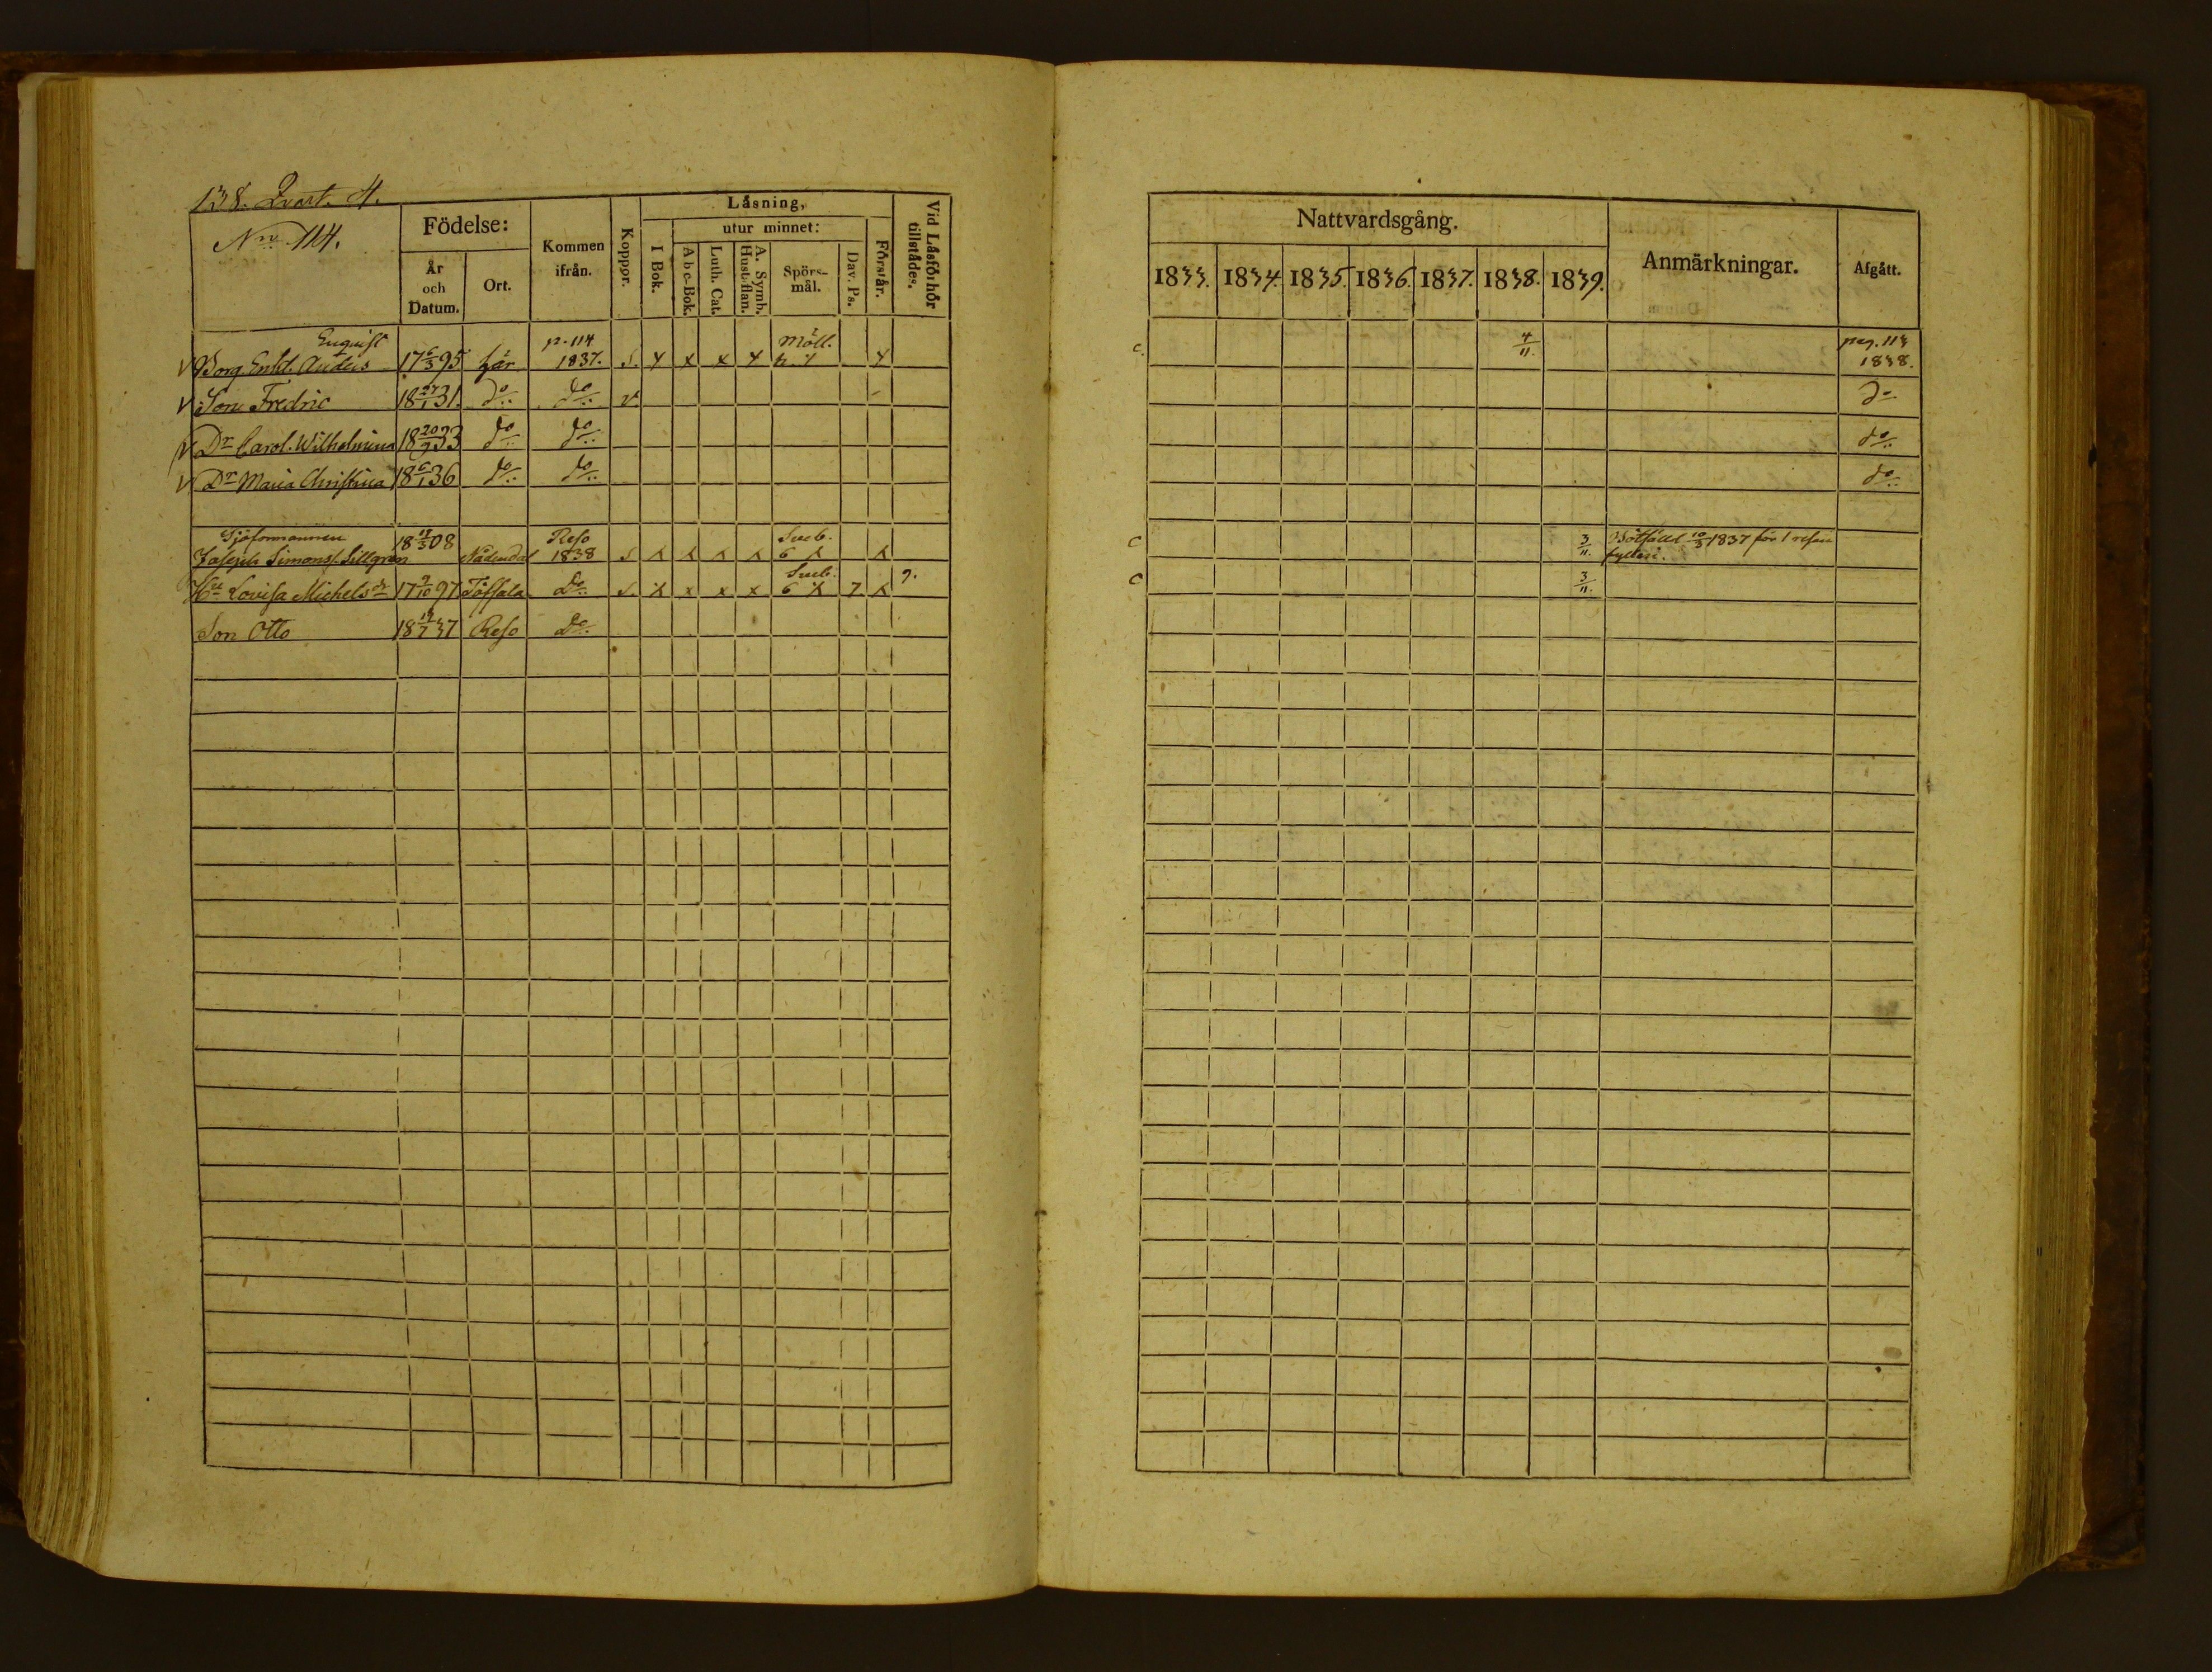 138. Qvart. 4.
Nro 114.
Födelse:
År och Datum.
Ort.
Kommen ifrån.
Koppor.
Låsning,
I Bok.
utur minnet:
Abc-Bok.
Luth. Cat.
A. Symb. Hust-flan.
Spörs-mål.
Dav. Ps.
Förstår.
Vid Låsförhör tillstådes.
Enqvist p. 114 Möll.
V Borg. Enkl. Anders 17 6/3 95 här 1837. S. x x x x
V Son Fredric 18 27/1 31. do do v
V Dr Carol. Wilhelmina 18 20/9 33 do do
V Dr Maria Christina 18 6/1 36 do do
Sjöformannen Reso Sveb.
Joseph Simonss. Sillgren 18 12/3 08 Nådendal 1838 S x x x x 6 x x
Sveb. 9.
Hu Lovisa Michelsdr 17 9/10 97 Töfsala do S. x x x x 6 x 7 x
Son Otto 18 12/7 37 Reso do
Nattvardsgång.
1833. 1834. 1835. 1836. 1837. 1838. 1839.
Anmärkningar.
Afgått.
c. 4/11. pag. 113
1838.
do
do
do
c 3/11. Bötfälld 10/3 1837 för 1 resan
fylleri.
c 3/11.